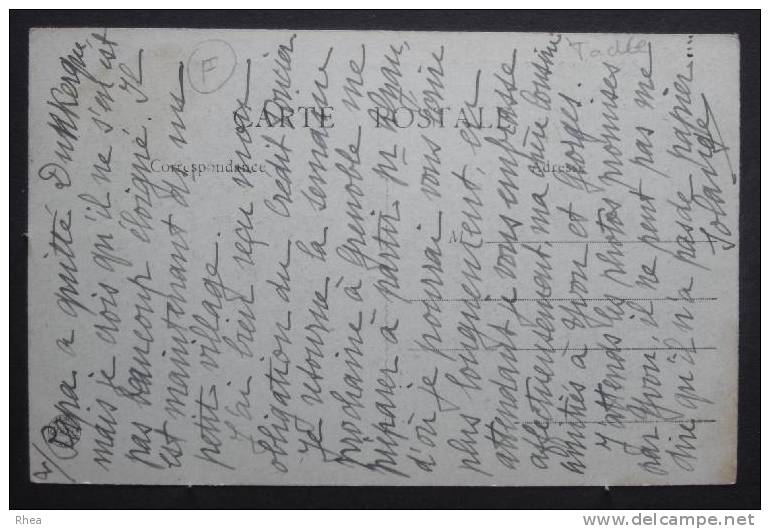 2/ Papa a quitté Dunkerque,
mais je crois qu'il ne s'en est
pas beaucoup éloigné. Il
est maintenant ds un
petit village.
J'ai bien reçu mon
obligation du Crédit Foncier
Je retourne la semaine
prochaine à Grenoble me
préparer à partir pr
d'où je pourrai vous écrire
plus longuement, en
attendant je vous embrasse
affectueusement, ma chère cousine
amitiés à Yvon et Georges.
J'attends les photos promises
par Yvon, il ne peut pas me
dire qu'il n'a pas de papier.
Solange
F
CARTE POSTALE
Correspondance
Adresse
M
Rhea
delcampe.net